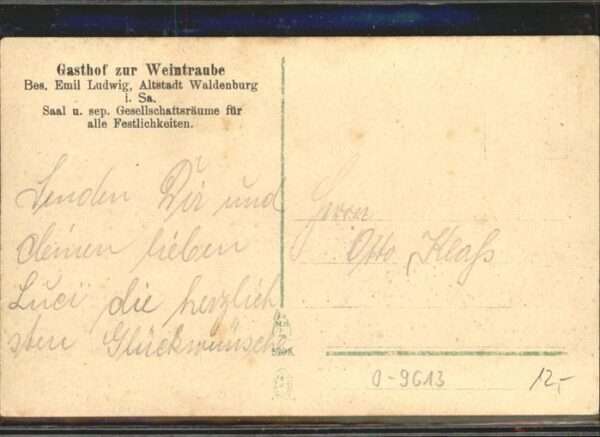 Gasthof zur Weintraube
Bes. Emil Ludwig, Altstadt Waldenburg
i. Sa.
Saal u. sep. Gesellschaftsräume für
alle Festlichkeiten.
Senden Dir und
deinen lieben
Luci die herzlich
sten Glückwünsche
Herrn
Otto Klaß
0-9613
12,-